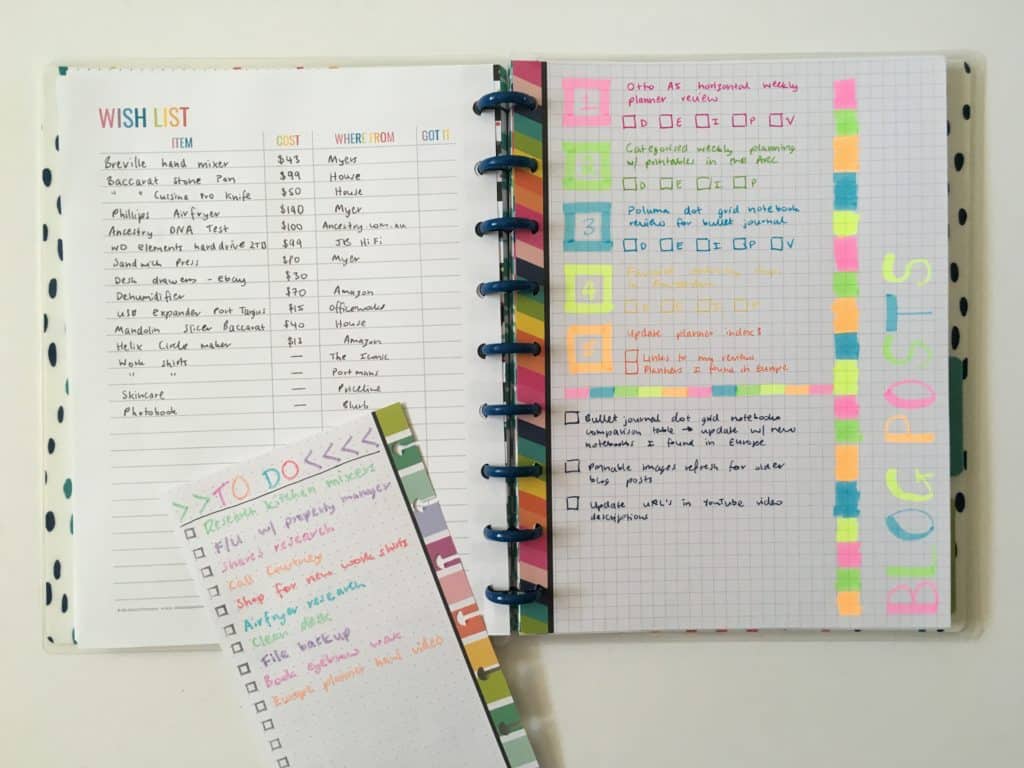 WISH LIST
ITEM COST WHERE FROM GOT IT
Breville hand mixer $43 Myers
Baccarat Stone Pan $99 House
" " Cuisine Pro Knife $50 House
Phillips Airfryer $190 Myer
Ancestry DNA Test $100 Ancestry.com.au
WD elements hard drive 2TB $99 JB HiFi
Sandwich Press Myer
Desk drawers - ebay $30
Dehumidifier $70 Amazon
USB Expander Port Targus $15 Officeworks
Mandolin Slicer Baccarat $40 House
Helix Circle maker $13 Amazon
Work shirts — The Iconic
" " — Portmans
Skincare Priceline
Photobook — Blurb
>>TO DO<<<<<
Research kitchen mixers
F/U w/ property manager
Shares research
Call Courtney
Shop for new work shirts
Airfryer research
Clean desk
File backup
Book eyebrow wax
Europe planner haul video
1
Otto A5 horizontal weekly
planner review
D E I P V
Categorised weekly planning
w/ printables in the ARC
D E I P
3
Paluma dot grid notebook
review for bullet journal
D E I P V
4
5
Update planner index's
Links to my reviews
Planners I found in Europe
Bullet journal dot grid notebooks
comparison table → update w/ new
notebooks I found in Europe
Pinnable images refresh for older
blog posts
Update URL's in YouTube video
descriptions
BLOG POSTS